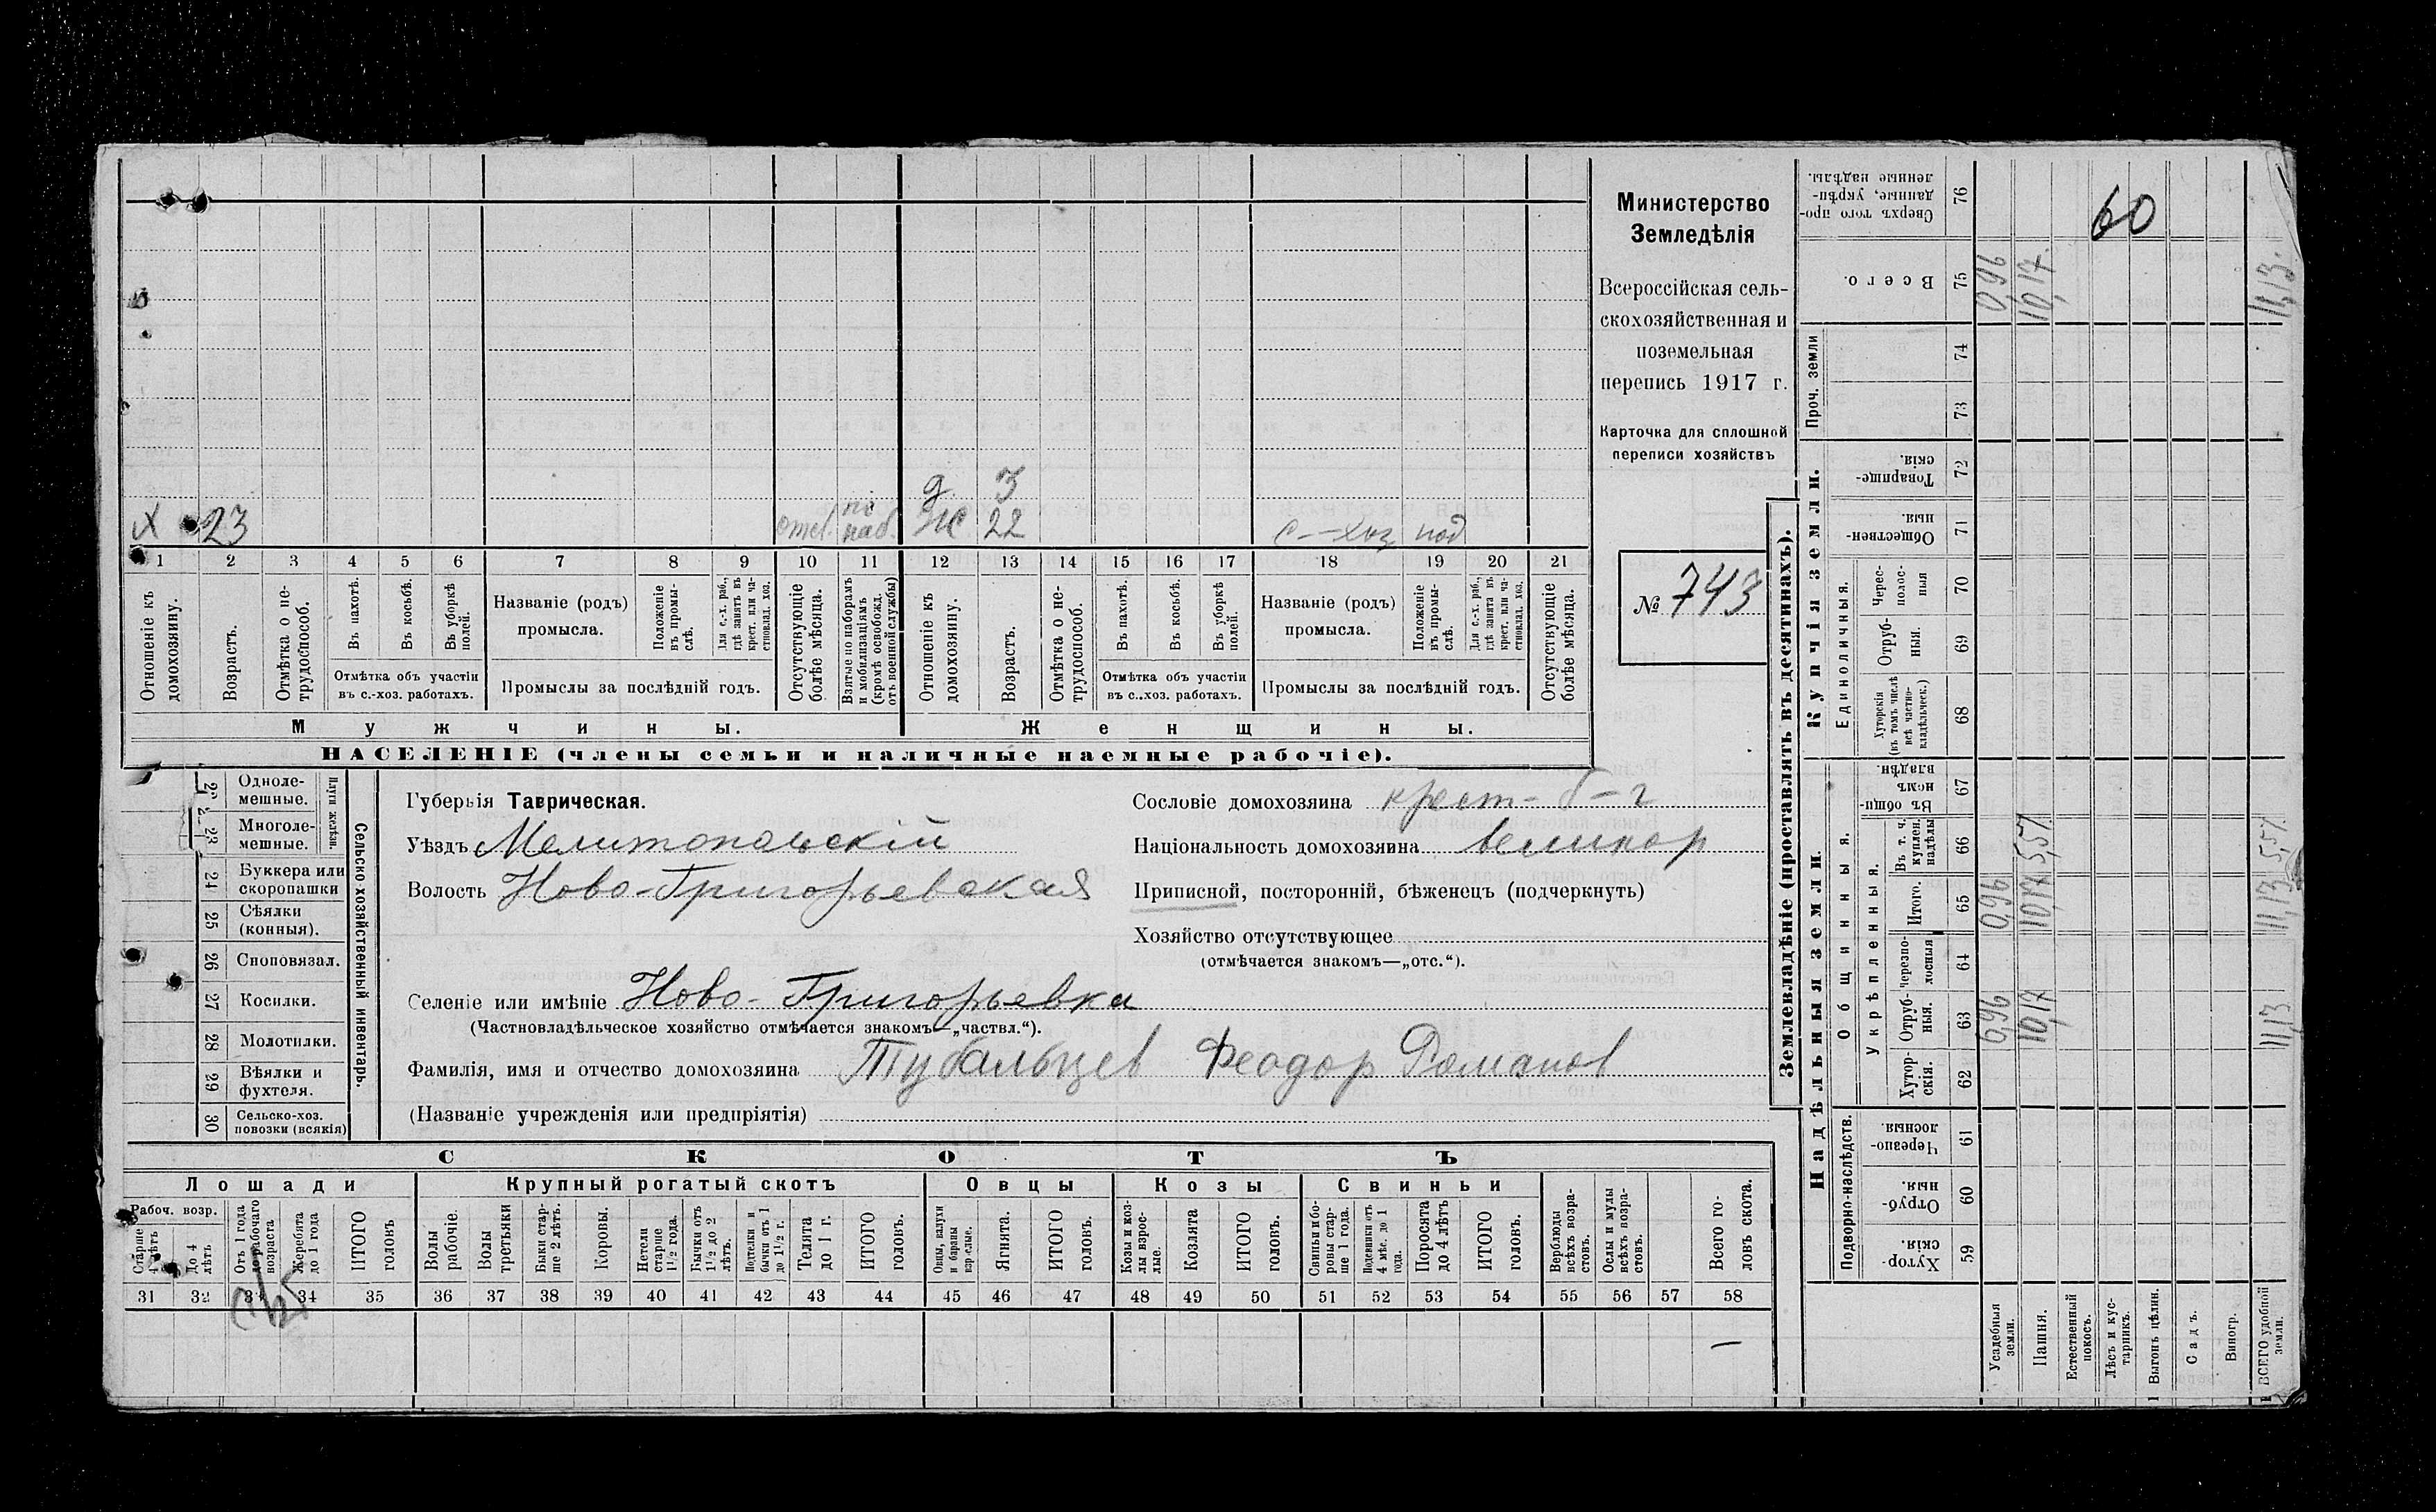 Министерство
Земледѣлія
Всероссійская сель-
скохозяйственная и
поземельная
перепись 1917 г.
Карточка для сплошной
переписи хозяйствъ
№ 743
60
д. 3
Х 23 отсл. по наб. Ж 22 с-хоз под
1 2 3 4 5 6 7 8 9 10 11 12 13 14 15 16 17 18 19 20 21
Отношеніе къ домохозяину.
Возрастъ.
Отмѣтка о не-трудоспособ.
Въ пахотѣ.
Въ косьбѣ.
Въ уборкѣ полей.
Отмѣтка объ участіи
въ с.-хоз. работахъ.
Названіе (родъ)
промысла.
Положеніе въ промы-слѣ.
Для с.-х. раб., гдѣ занятъ въ крест. или ча-стновлад. хоз.
Промыслы за послѣдній годъ.
Отсутствующіе болѣе мѣсяца.
Взятые по наборамъ и мобилизаціямъ (кромѣ освобожд. отъ военной службы)
Отношеніе къ домохозяину.
Возрастъ.
Отмѣтка о не-трудоспособ.
Въ пахотѣ.
Въ косьбѣ.
Въ уборкѣ полей.
Отмѣтка объ участіи
въ с..хоз. работахъ.
Названіе (родъ)
промысла.
Положеніе въ промы-слѣ.
Для с.-х. раб., гдѣ занята въ крест. или ча-стновлад. хоз.
Промыслы за послѣдній годъ.
Отсутствующіе болѣе мѣсяца.
Мужчины. Женщины.
НАСЕЛЕНІЕ (члены семьи и наличные наемные рабочіе).
Сельско-хозяйственный инвентарь.
Плуги желѣзн.
22 Одноле-мешные.
23 Многоле-мешные.
24 Буккера или скоропашки
25 Сѣялки (конныя).
26 Сноповязал.
27 Косилки.
28 Молотилки.
29 Вѣялки и фухтеля.
30 Сельско-хоз. повозки (всякія)
Губернія Таврическая.
Уѣздъ Мелитопольскій
Волость Ново-Григорьевская
Сословіе домохозяина крест-б-г
Національность домохозяина великор
Приписной, посторонній, бѣженецъ (подчеркнуть)
Хозяйство отсутствующее
(отмѣчается знакомъ—„отс.“).
Селеніе или имѣніе Ново-Григорьевка
(Частновладѣльческое хозяйство отмѣчается знакомъ—„частвл.“).
Фамилія, имя и отчество домохозяина Тубальцев Феодор Романов
(Названіе учрежденія или предпріятія)
СКОТЪ
Лошади Крупный рогатый скотъ Овцы Козы Свиньи
Рабоч. возр.
Старше 4 лѣтъ
До 4 лѣтъ
Отъ 1 года до рабочаго возраста
Жеребята до 1 года
ИТОГО головъ
Волы рабочіе.
Волы третьяки
Быки стар-ше 2 лѣтъ.
Коровы.
Нетели старше 1½ года.
Бычки отъ 1½ до 2 лѣтъ.
Подтелки и бычки отъ 1 до 1½ г.
Телята до 1 г.
ИТОГО головъ.
Овцы, валухи и бараны взрослые.
Ягнята.
ИТОГО головъ.
Козы и коз-лы взрос-лые.
Козлята
ИТОГО головъ.
Свиньи и бо-ровы стар-ше 1 года.
Подсвинки отъ 4 мѣс. до 1 года.
Поросята до 4 лѣтъ
ИТОГО головъ.
Верблюды всѣхъ возра-стовъ.
Ослы и мулы всѣхъ возра-стовъ.
Всего го-ловъ скота.
31 32 33 34 35 36 37 38 39 40 41 42 43 44 45 46 47 48 49 50 51 52 53 54 55 56 57 58
—
Землевладѣніе (проставлять въ десятинахъ).
Надѣльныя земли. Купчія земли. Проч. земли
Подворно-наслѣдств. Общинныя. Единоличныя.
Укрѣпленныя.
59 Хутор-скія.
60 Отруб-ныя.
61 Черезпо-лосныя.
62 Хутор-скія.
63 Отруб-ныя. 0,96 10,17 11,13
64 Черезпо-лосныя
65 Итого. 0,96 10,17 11,13
66 Въ т. ч. куплен. надѣлы 5,57 5,57
67 Въ общи-номъ владѣн.
68 Хуторскія (въ томъ числѣ всѣ частно-владѣльческ.)
69 Отруб-ныя.
70 Черес-полос-ныя
71 Обществен-ныя.
72 Товарище-скія.
73
74
75 Всего. 0,96 10,17 11,13.
76 Сверхъ того про-данные, укрѣп-ленные надѣлы.
Усадебныя земли.
Пашня.
Естественный покосъ.
Лѣсъ и кус-тарникъ.
Выгонъ цѣлин.
Садъ.
Виногр.
ВСЕГО удобной земли.